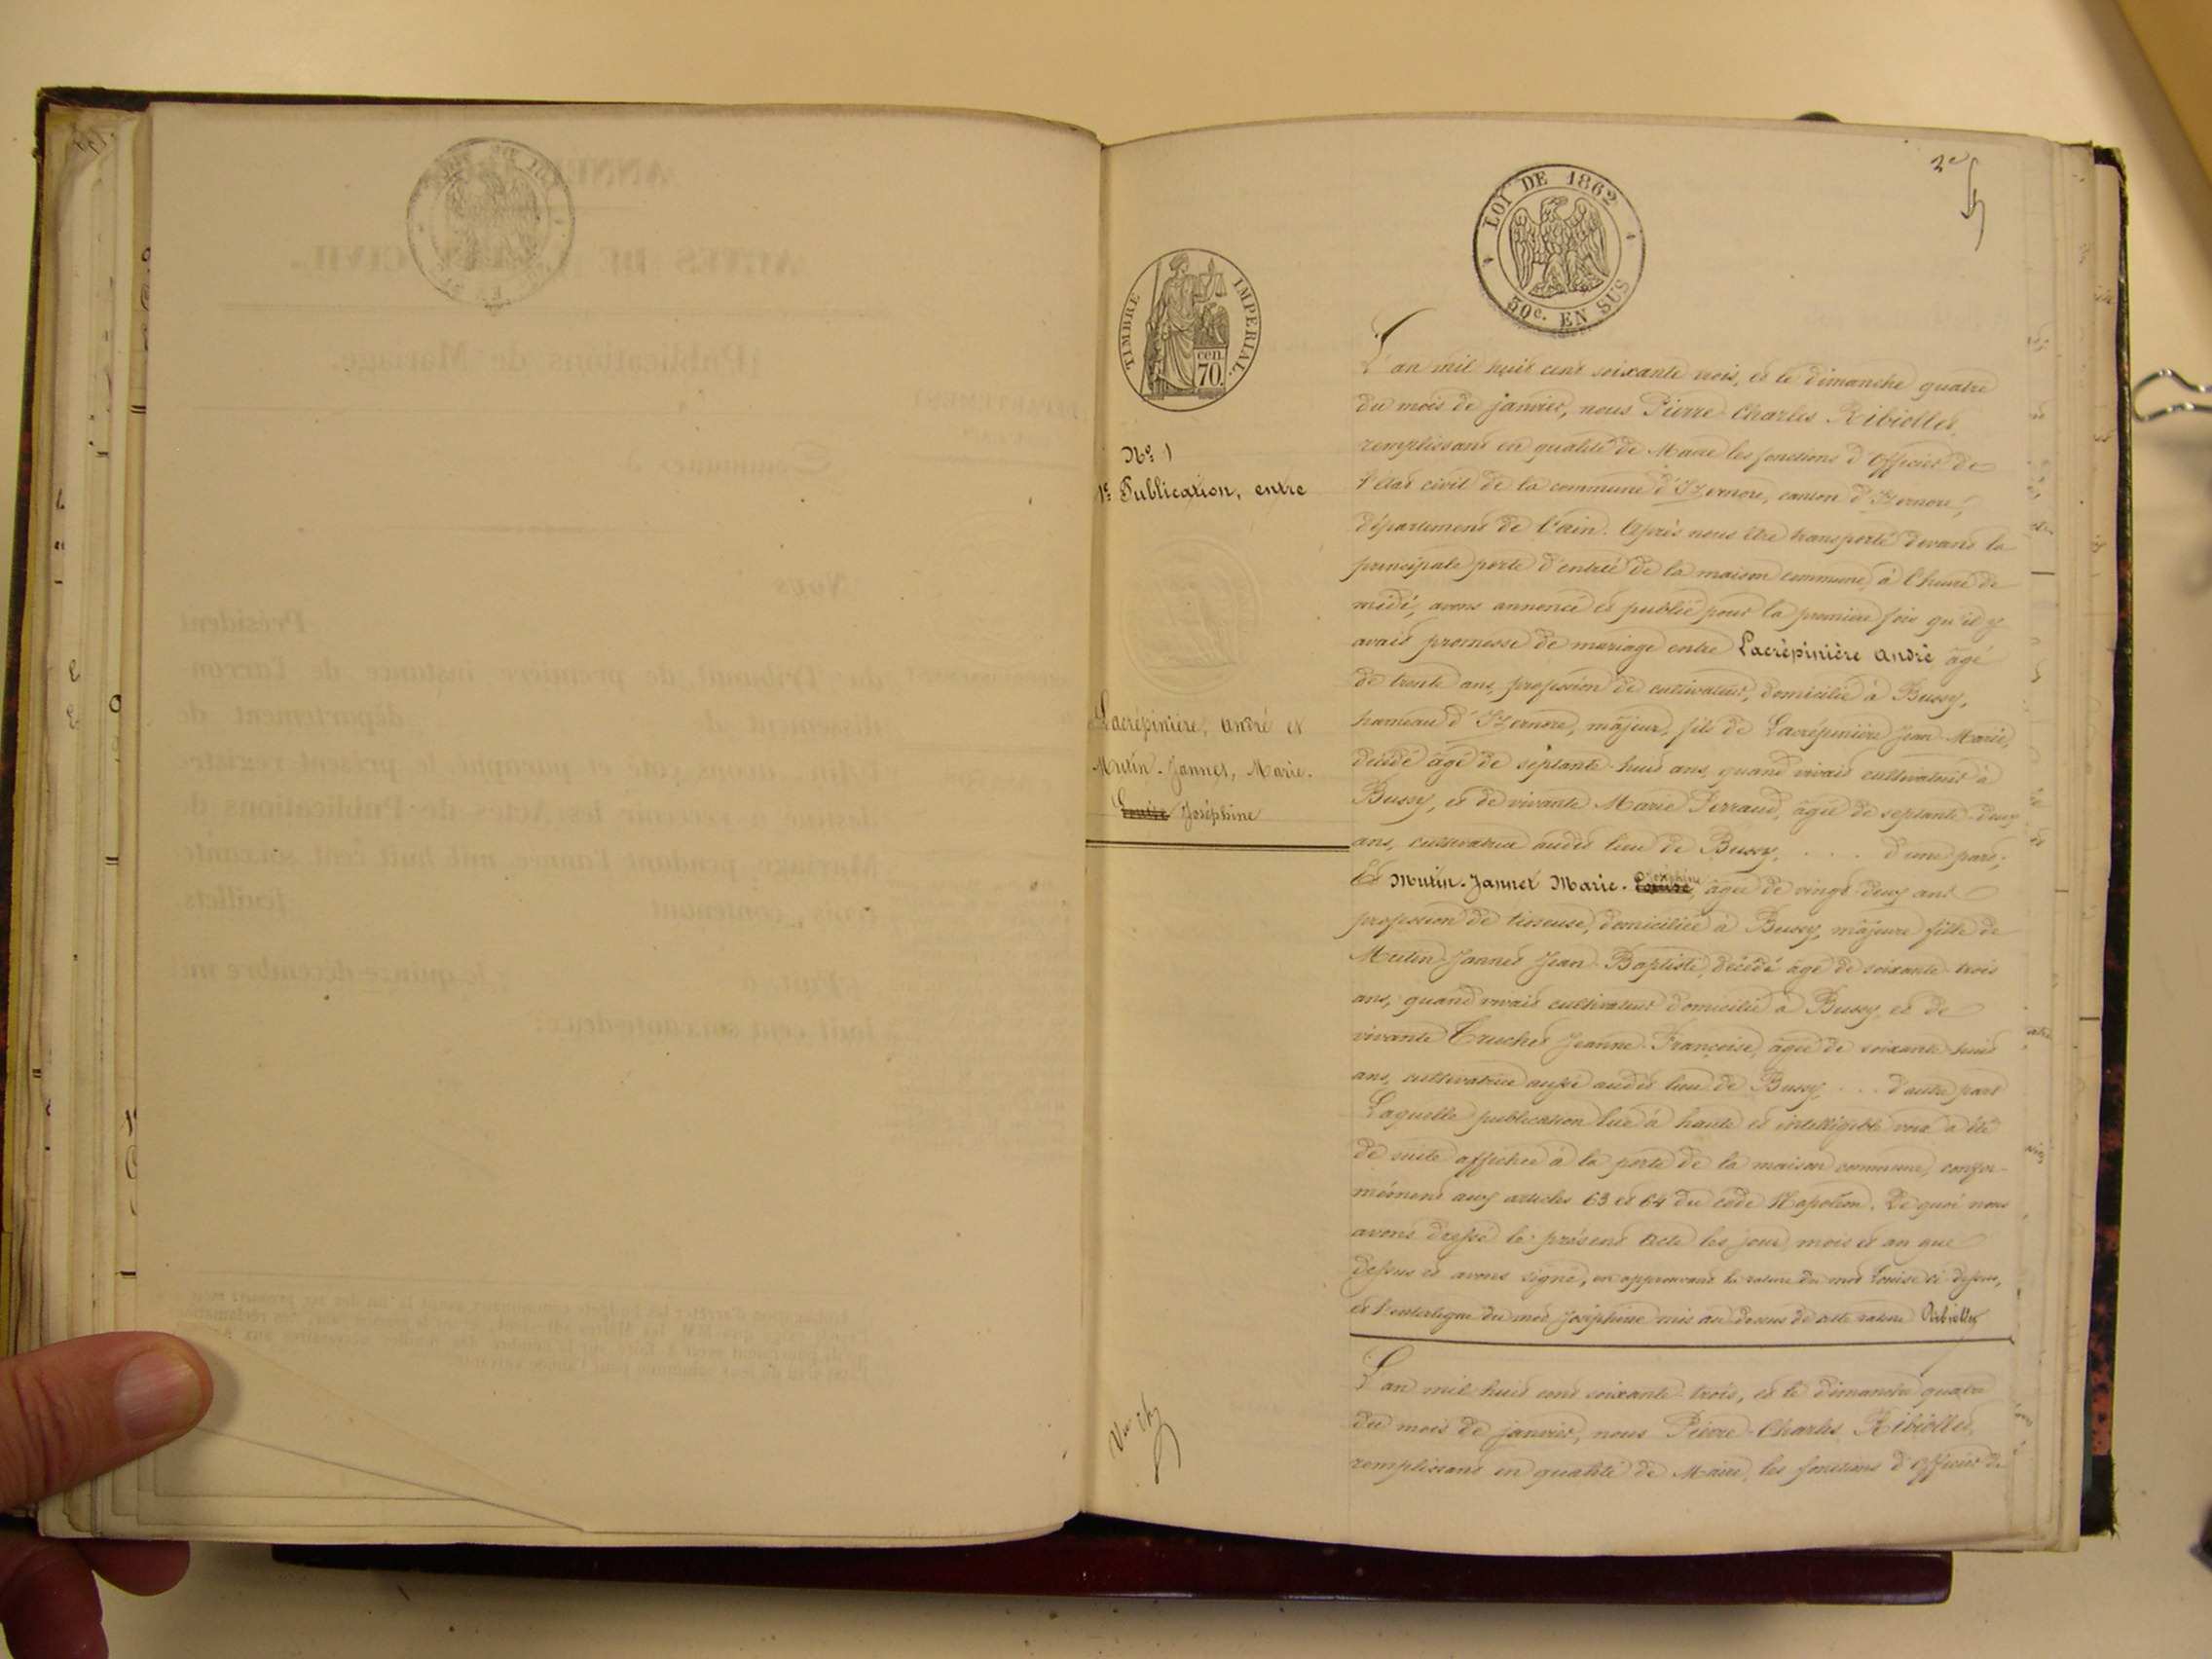 LOI DE 1862
50c. EN SUS
TIMBRE IMPERIAL
cen.
70.
2e
No. 1
1e Publication, entre
Lacrépinière, André et
Mutin-Jannet, Marie-
Louise Joséphine
L'an mil huit cent soixante trois, et le dimanche quatre
du mois de janvier, nous Pierre Charles Ribiollet
remplissant en qualité de Maire les fonctions d'Officier de
l'état civil de la commune d'Izernore, canton d'Izernore,
département de l'ain. Après nous être transporté devant la
principale porte d'entrée de la maison commune, à l'heure de
midi, avons annoncé et publié pour la première fois qu'il y
avait promesse de mariage entre Lacrépinière André âgé
de trente ans, profession de cultivateur, domicilié à Bussy,
hameau d'Izernore, majeur, fils de Lacrépinière Jean-Marie,
décédé âgé de septante-huit ans, quand vivait cultivateur à
Bussy, et de vivante Marie Perraud, âgée de septante-deux
ans, cultivatrice audit lieu de Bussy, . . . . d'une part;
Et Mutin-Jannet Marie-Louise Joséphine, âgée de vingt-deux ans
profession de tisseuse, domiciliée à Bussy, majeure fille de
Mutin-Jannet Jean-Baptiste, décédé âgé de soixante-trois
ans, quand vivait cultivateur domicilié à Bussy et de
vivante Truchet Jeanne-Françoise, âgée de soixante-huit
ans, cultivatrice aussi audit lieu de Bussy, . . . d'autre part
Laquelle publication lue à haute et intelligible voix a été
de suite affichée à la porte de la maison commune, confor-
mément aux articles 63 et 64 du code Napoléon. De quoi nous
avons dressé le présent acte les jour, mois et an que
dessus et avons signé, en approuvant la rature du mot Louise ci-dessus,
et l'interligne du mot Joséphine mis au dessus de cette rature Ribiollet
L'an mil huit cent soixante-trois, et le dimanche quatre
du mois de janvier, nous Pierre-Charles Ribiollet,
remplissant en qualité de Maire, les fonctions d'Officier de